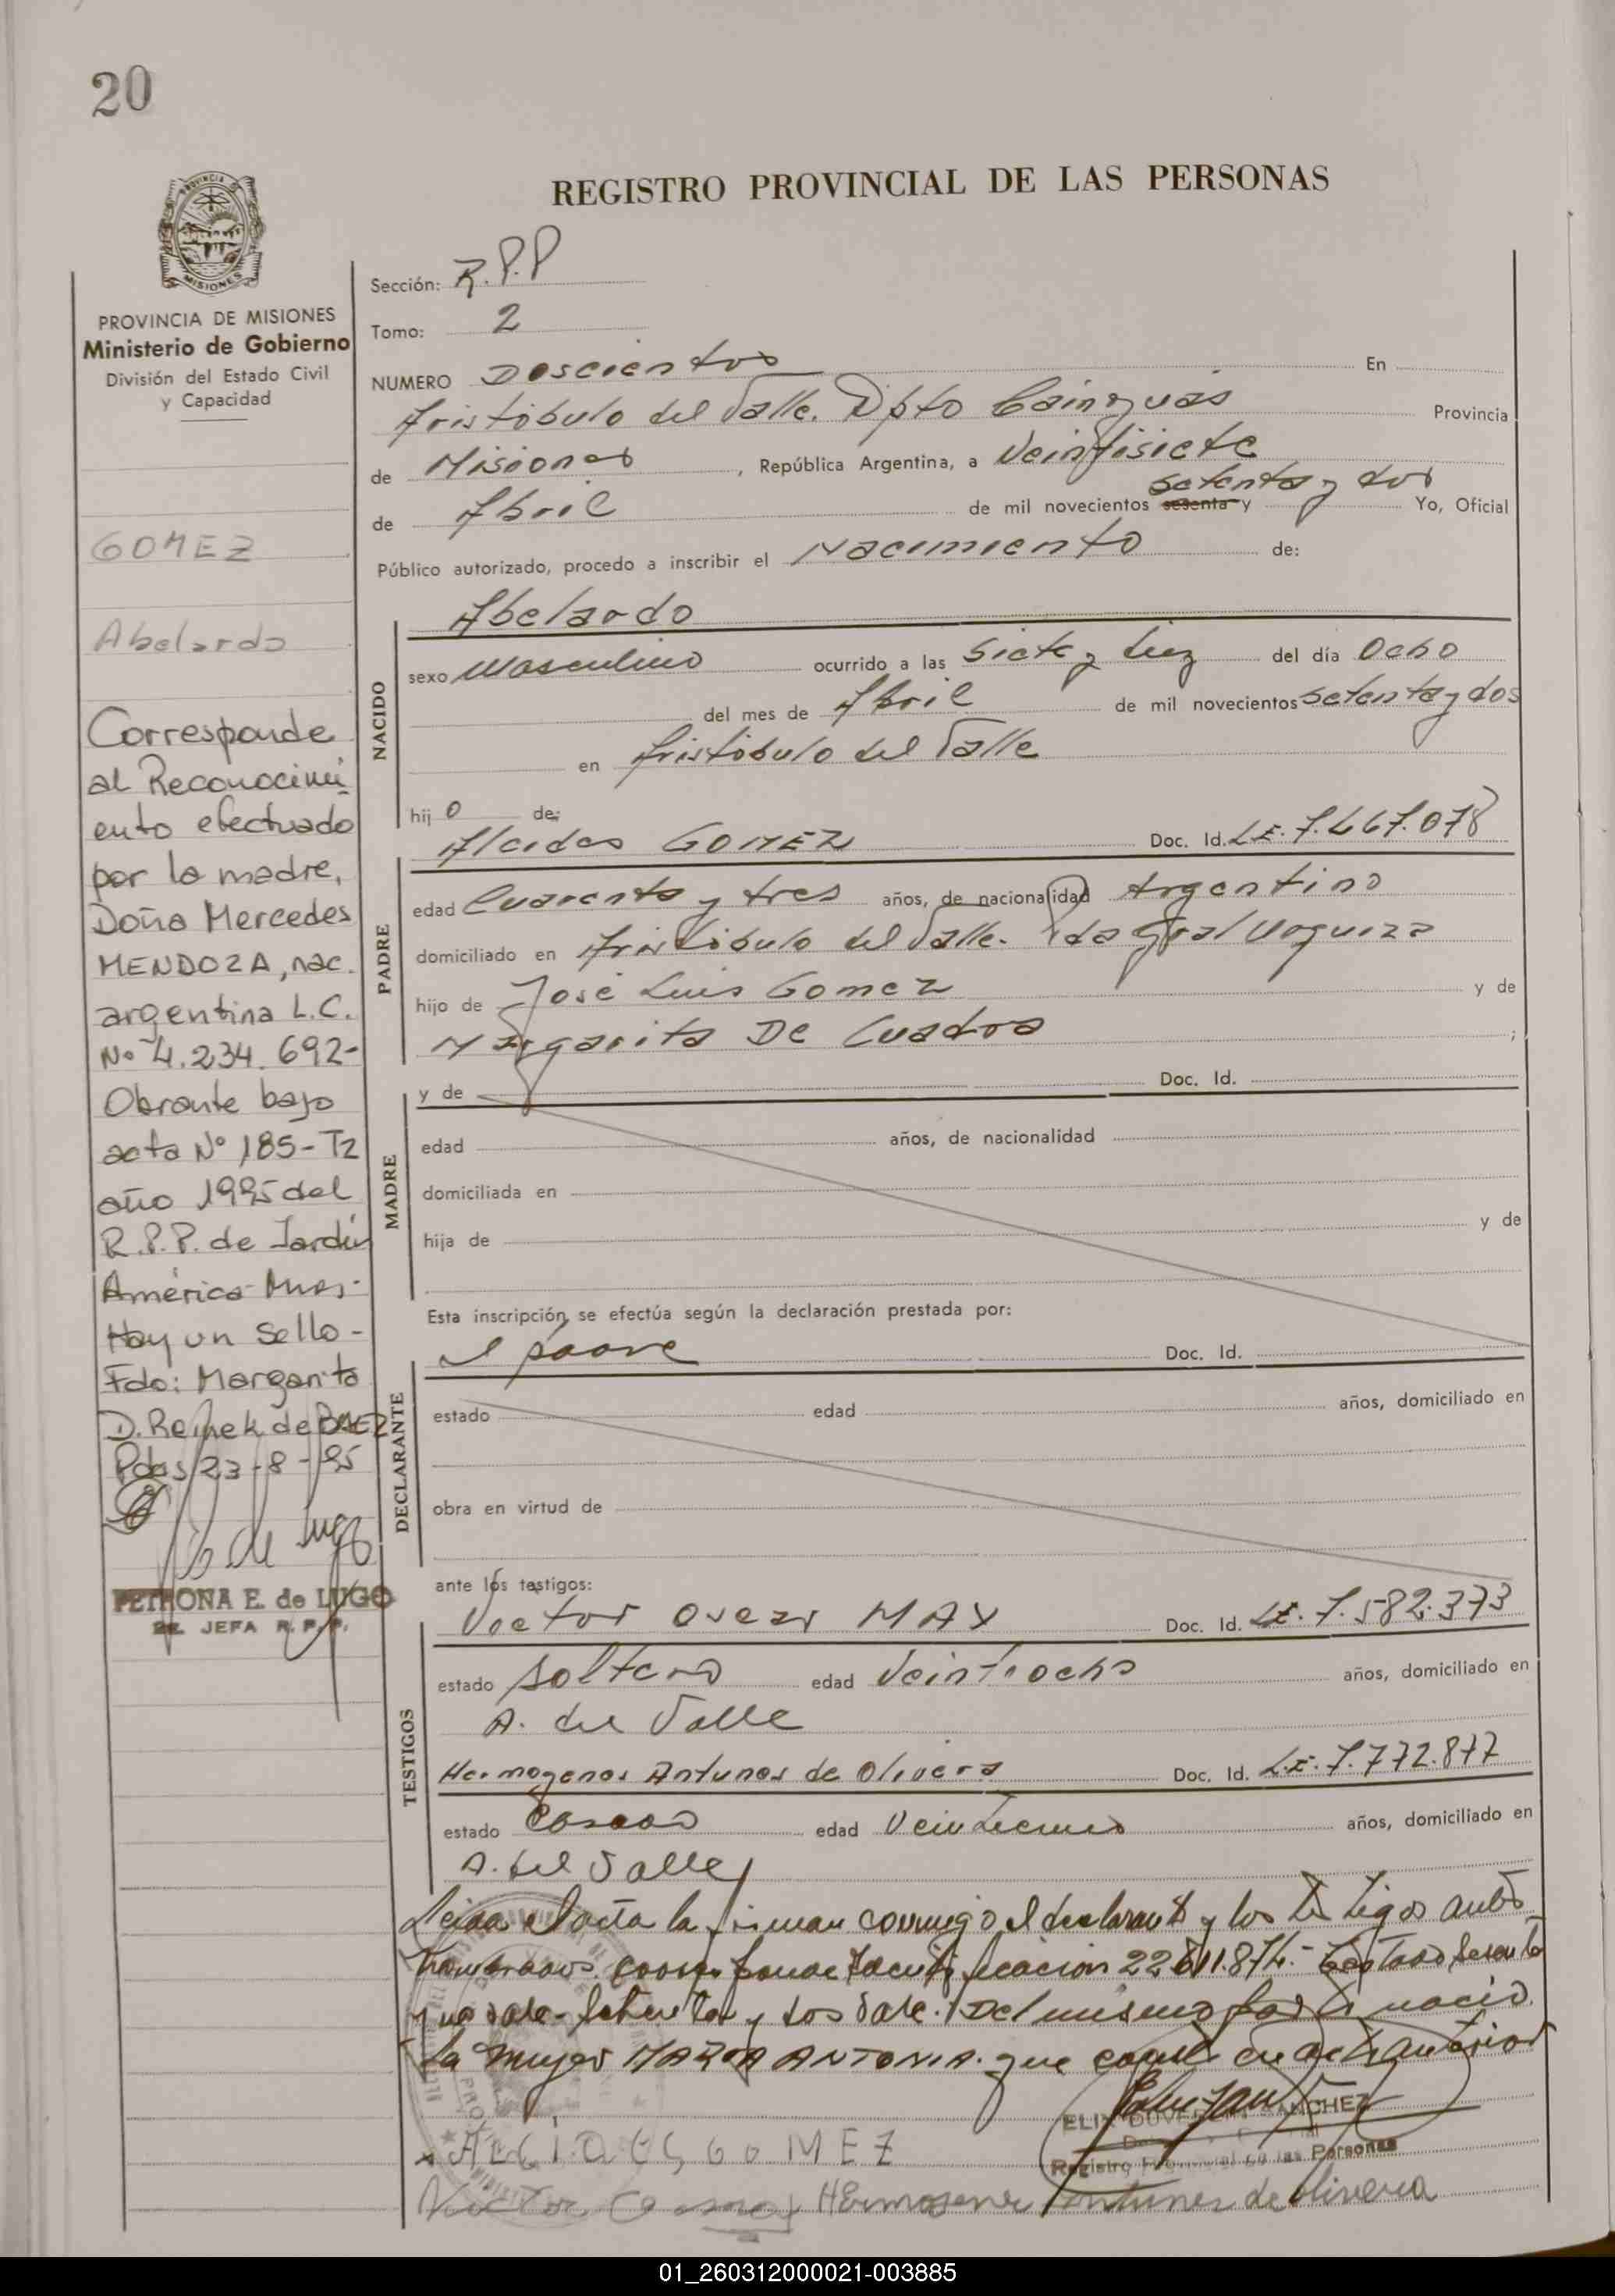 20
REGISTRO PROVINCIAL DE LAS PERSONAS
MISIONES
PROVINCIA DE MISIONES
Ministerio de Gobierno
División del Estado Civil
y Capacidad
GOMEZ
Abelardo
Corresponde
al Reconocimi
ento efectuado
por la madre,
Doña Mercedes
MENDOZA, nac.
argentina L.C.
Nº 4.234.692-
Obrante bajo
acta Nº 185-T2
año 1995 del
R.P.P. de Jardín
América Mnes-
Hay un sello-
Fdo: Margarita
D. Reinek de BAEZ
Pdas 23-8-95
de Lugo
PETRONA E. de LUGO
JEFA R.P.P.
Sección: R.P.P
Tomo: 2
NUMERO Doscientos En
Aristóbulo del Valle. Dpto Cainguás Provincia
de Misiones, República Argentina, a Veintisiete
setenta y dos
de Abril de mil novecientos sesenta y Yo, Oficial
Público autorizado, procedo a inscribir el Nacimiento de:
NACIDO
Abelardo
sexo Masculino ocurrido a las Siete y diez del día Ocho
del mes de Abril de mil novecientos setenta y dos
en Aristóbulo del Valle
hijo de:
PADRE
Alcides GOMEZ Doc. Id. L.E. 7.467.078
edad Cuarenta y tres años, de nacionalidad Argentino
domiciliado en Aristóbulo del Valle. Pda Gral Urquiza
hijo de José Luis Gomez y de
Margarita De Cuadra ;
MADRE
y de Doc. Id.
edad años, de nacionalidad
domiciliada en
hija de y de
Esta inscripción se efectúa según la declaración prestada por:
DECLARANTE
el padre Doc. Id.
estado edad años, domiciliado en
obra en virtud de
ante los testigos:
TESTIGOS
Victor Oscar MAY Doc. Id. L.E. 7.582.373
estado Soltero edad Veintiocho años, domiciliado en
A. del Valle
Hermogenes Antunes de Olivera Doc. Id. L.E. 7.772.877
estado Casado edad años, domiciliado en
A. del Valle
Leida el acta la firman conmigo el declarante y los testigos antes
nombrados. 22.611.874.- Testado sesenta
y no vale- setenta y dos vale. Del mismo parto nació
la mujer MARIA ANTONIA que consta en acta anterior
SANCHEZ
Registro Provincial de las Personas
ALCIDES GOMEZ
Victor Hermogenes Antunes de Olivera
01_260312000021-003885